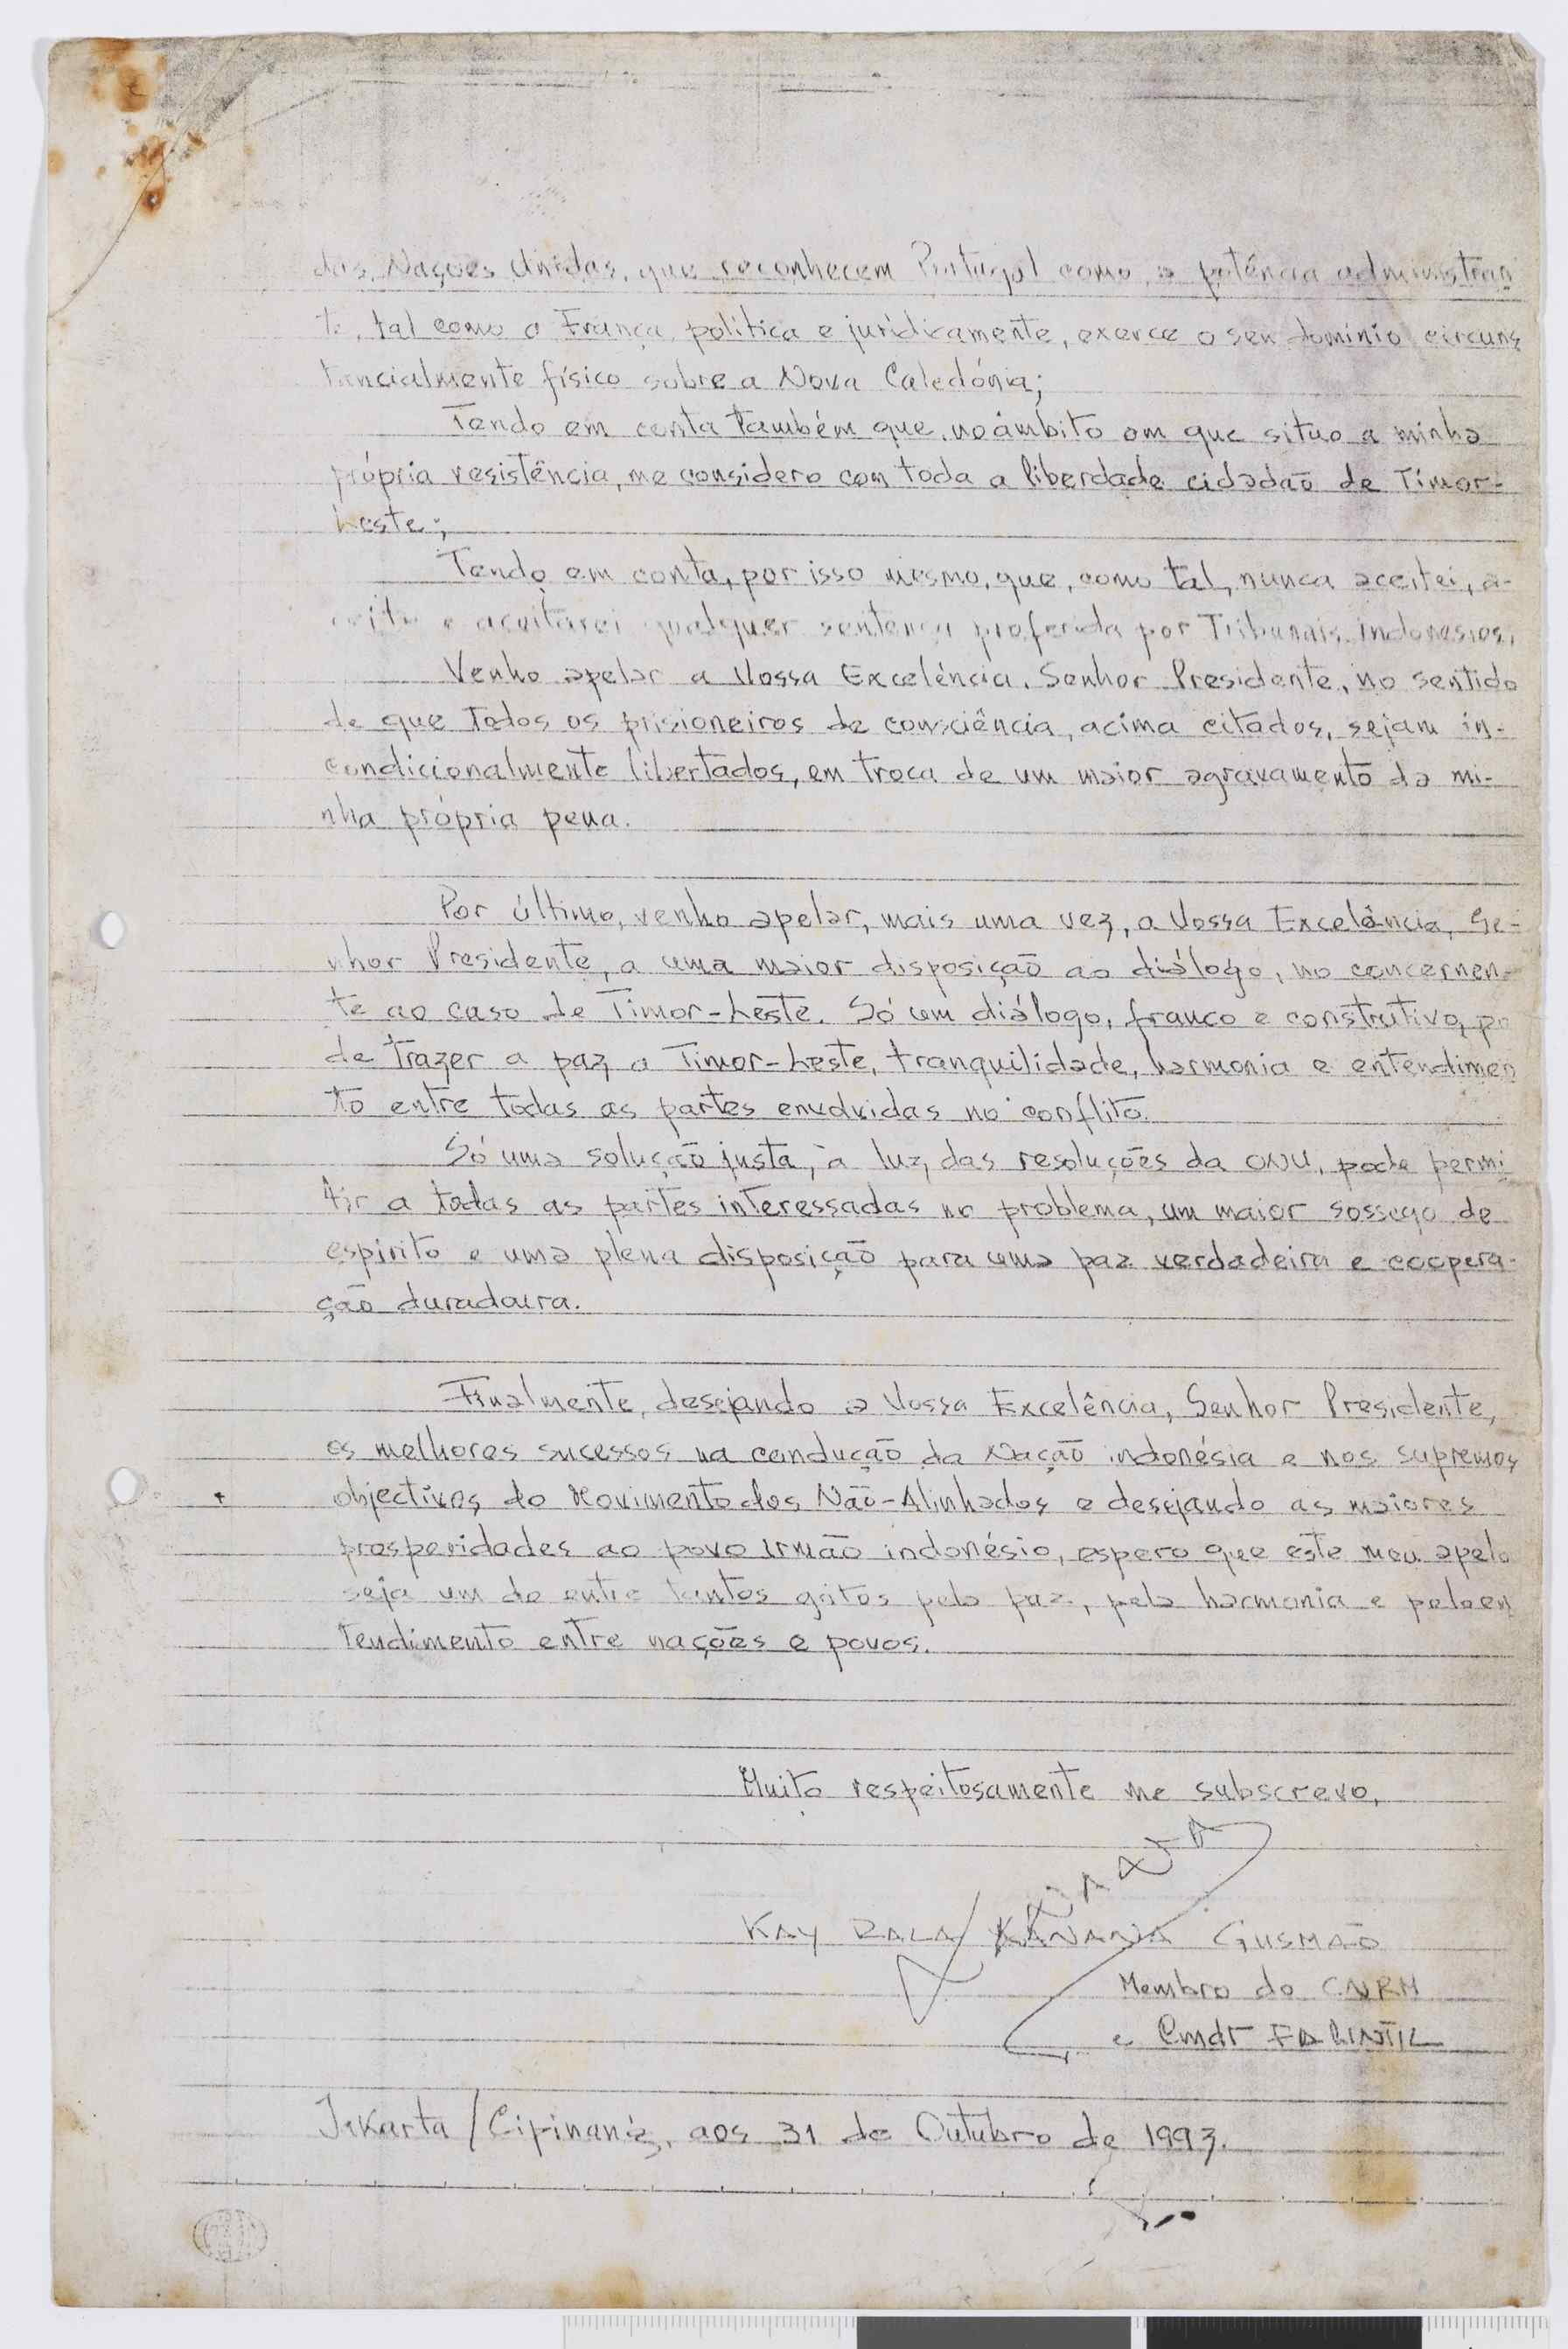 das Nações Unidas, que reconhecem Portugal como a potência administran
te, tal como a França, política e juridicamente, exerce o seu domínio circuns
tancialmente físico sobre a Nova Caledónia;
Tendo em conta também que, no âmbito em que situo a minha
própria resistência, me considero com toda a liberdade cidadão de Timor-
Leste;
Tendo em conta, por isso mesmo, que, como tal, nunca aceitei, a-
ceito e aceitarei qualquer sentença proferida por Tribunais indonésios,
Venho apelar a Vossa Excelência, Senhor Presidente, no sentido
de que todos os prisioneiros de consciência, acima citados, sejam in-
condicionalmente libertados, em troca de um maior agravamento da mi-
nha própria pena.
Por último, venho apelar, mais uma vez, a Vossa Excelência, Se-
nhor Presidente, a uma maior disposição ao diálogo, no concernen-
te ao caso de Timor-Leste. Só um diálogo, franco e construtivo, po
de trazer a paz a Timor-Leste, tranquilidade, harmonia e entendimen
to entre todas as partes envolvidas no conflito.
Só uma solução justa, à luz das resoluções da ONU, pode permi
tir a todas as partes interessadas no problema, um maior sossego de
espírito e uma plena disposição para uma paz verdadeira e coopera-
ção duradoura.
Finalmente, desejando a Vossa Excelência, Senhor Presidente,
os melhores sucessos na condução da Nação indonésia e nos supremos
objectivos do Movimento dos Não-Alinhados e desejando as maiores
prosperidades ao povo irmão indonésio, espero que este meu apelo
seja um de entre tantos gritos pela paz, pela harmonia e pelo en
tendimento entre nações e povos.
Muito respeitosamente me subscrevo,
KAY RALA XANANA GUSMÃO
Membro do CNRM
e Cmdt FALINTIL
Jakarta/Cipinang, aos 31 de Outubro de 1993.